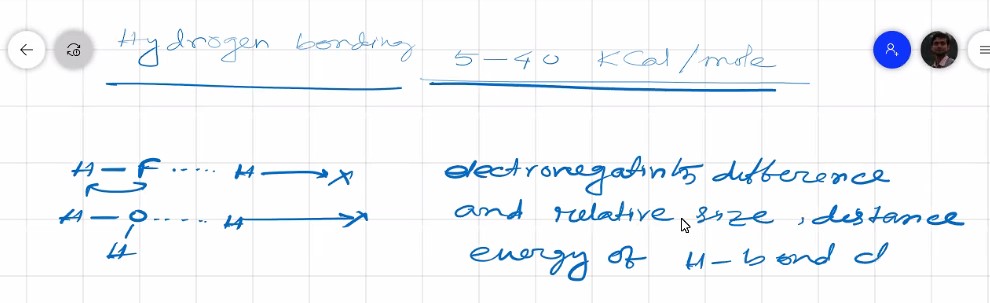 Hydrogen bonding 5-40 KCal/mole
H-F ..... H → X
H-O .... H → X
H
electronegativity difference
and relative size, distance
energy of H-bond d